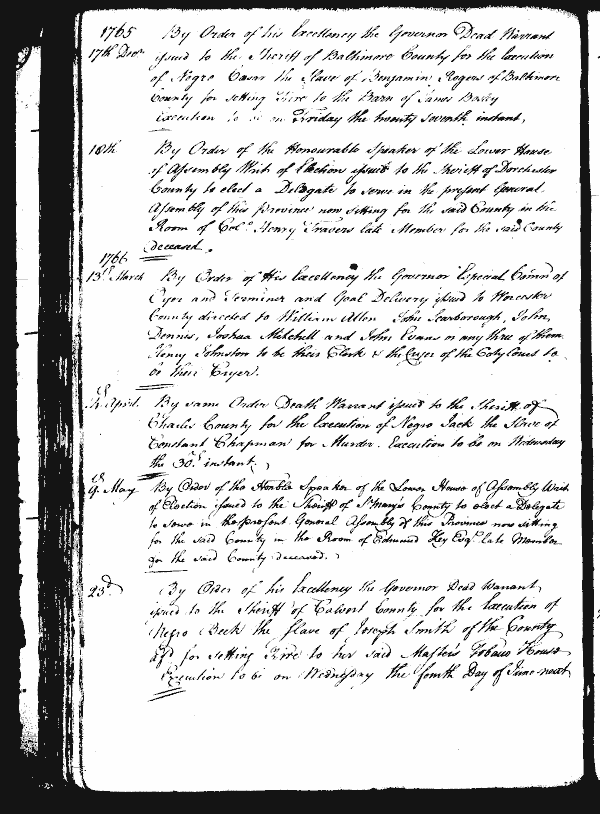 1765
17th Decr. By Order of his Excellency the Governor Dead Warrant
issued to the Sheriff of Baltimore County for the Execution
of Negro Caesar the Slave of Benjamin Rogers of Baltimore
County for setting Fire to the Barn of James Bosley
Execution to be on Friday the twenty seventh instant,
18th By Order of the Honourable Speaker of the Lower House
of Assembly Writ of Election issued to the Sheriff of Dorchester
County to elect a Delegate to serve in the present General
Assembly of this Province now sitting for the said County in the
Room of Colo. Henry Travers late Member for the said County
deceased.
1766
13th March By Order of His Excellency the Governor Especial Comn of
Oyer and Terminer and Goal Delivery issued to Worcester
County directed to William Allen John Scarborough, John
Dennis, Joshua Mitchell and John Evans or any three of them
Henry Johnston to be their Clerk & the Cryer of the Coty Court to
be their Cryer.
April. By same Order Death Warrant issued to the Sheriff of
Charles County for the Execution of Negro Jack the Slave of
Constant Chapman for Murder. Execution to be on Wednesday
the 30th instant.
9th May By Order of the Honble Speaker of the Lower House of Assembly Writ
of Election issued to the Sheriff of St Mary's County to elect a Delegate
to serve in the present General Assembly of this Province now sitting
for the said County in the Room of Edmund Key Esqr. late Member
for the said County deceased.
23d By Order of his Excellency the Governor Dead Warrant
issued to the Sheriff of Calvert County for the Execution of
Negro Beck the Slave of Joseph Smith of the County
afd for setting Fire to her said Master's Tobacco House
Execution to be on Wednesday the fourth Day of June next